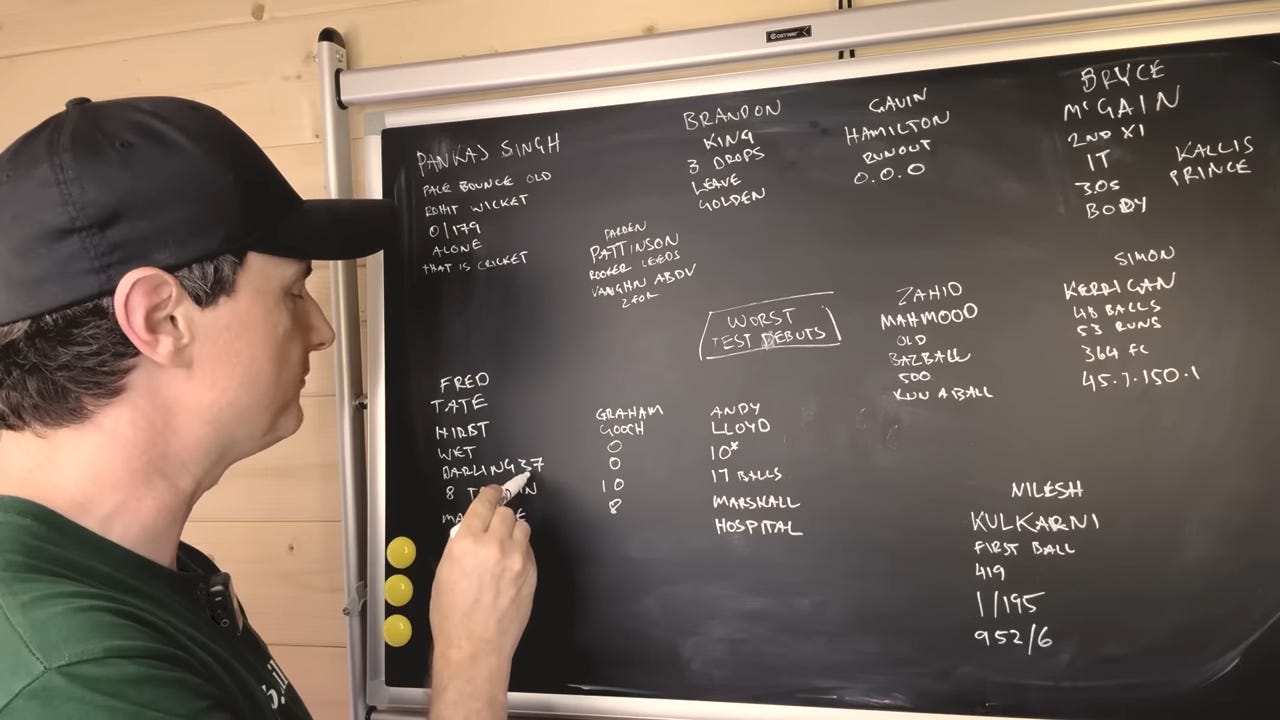 COSTWAY
PANKAJ SINGH
PACE BOUNCE OLD
ROHIT WICKET
0/179
ALONE
THAT IS CRICKET
DARREN
PATTINSON
ROOFER LEEDS
VAUGHN ABDV
2FOR
BRANDON
KING
3 DROPS
LEAVE
GOLDEN
GAVIN
HAMILTON
RUNOUT
0.0.0
BRYCE
McGAIN
2ND XI
IT
3.05
BODY
KALLIS
PRINCE
WORST
TEST DEBUTS
ZAHID
MAHMOOD
OLD
BAZBALL
500
RUN A BALL
SIMON
KERRIGAN
48 BALLS
53 RUNS
364 FC
45.7.150.1
FRED
TATE
HIRST
WET
DARLING 37
8
GRAHAM
GOOCH
0
0
10
8
ANDY
LLOYD
10*
17 BALLS
MARSHALL
HOSPITAL
NILESH
KULKARNI
FIRST BALL
419
1/195
952/6